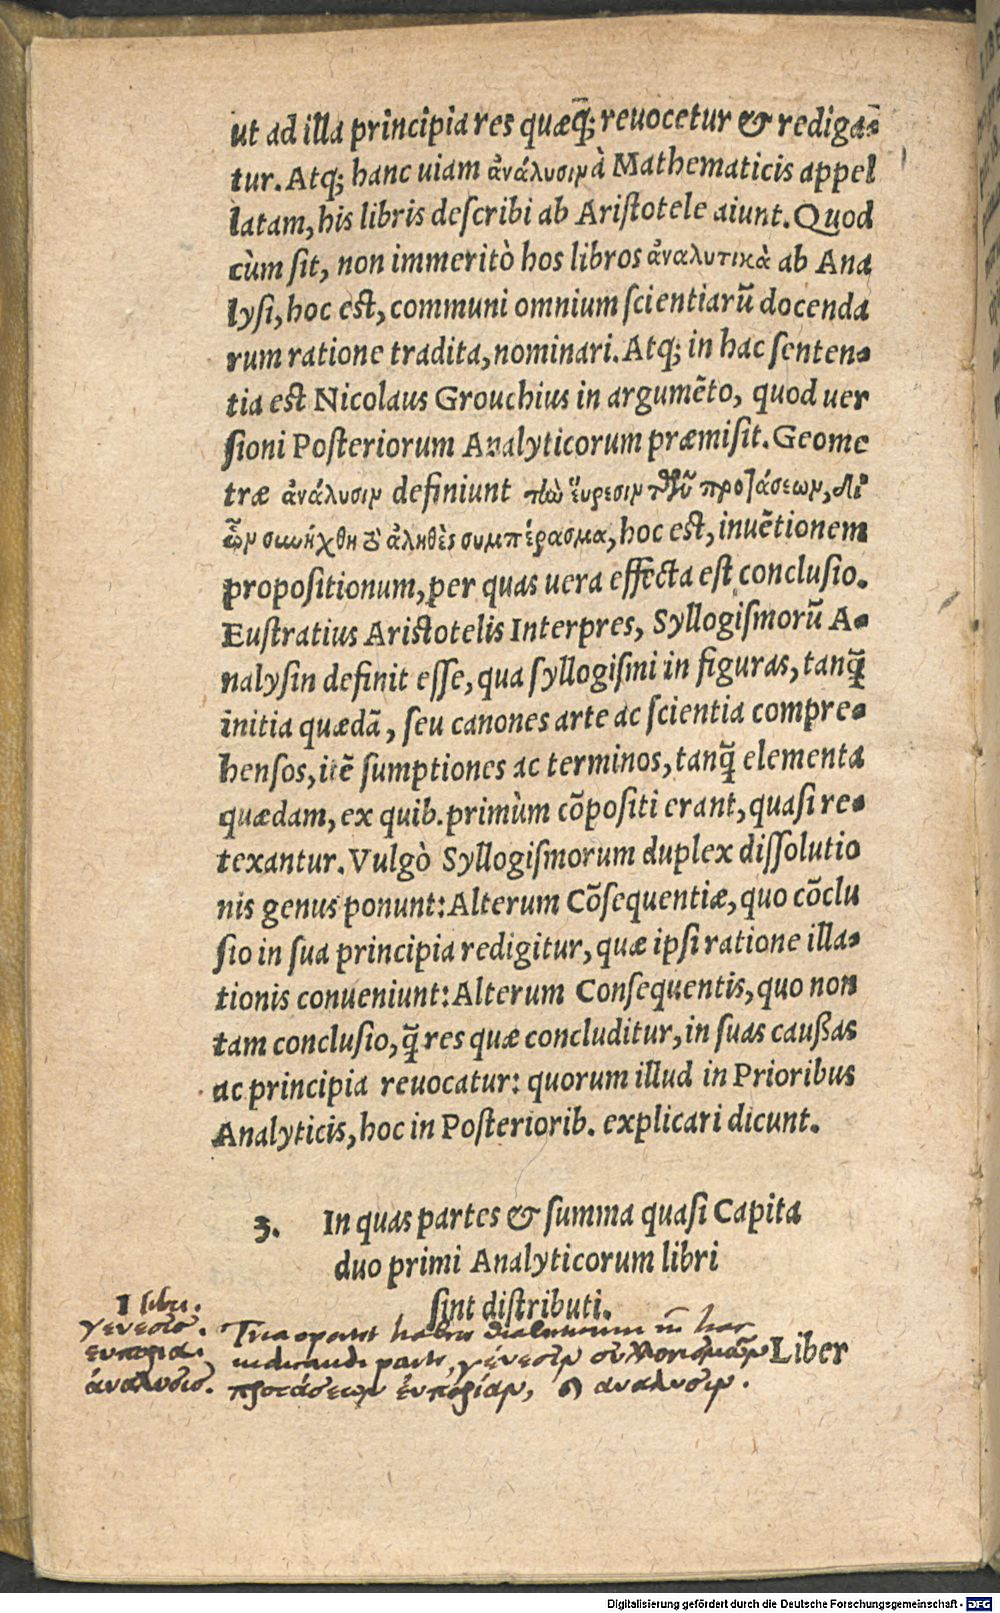 ut ad illa principia res quæq̃; reuocetur & rediga-
tur. Atq; hanc uiam ἀνάλυσιν à Mathematicis appel
latam, his libris describi ab Aristotele aiunt. Quod
cùm sit, non immeritò hos libros ἀναλυτικὰ ab Ana
lysi, hoc est, communi omnium scientiarũ docenda
rum ratione tradita, nominari. Atq; in hac senten-
tia est Nicolaus Grouchius in argumẽto, quod uer
sioni Posteriorum Analyticorum præmisit. Geome
træ ἀνάλυσιν definiunt τὴν ἕυρεσιν τῶν προτάσεων, δι'
ὧν συνήχθη τὸ ἀληθὲς συμπέρασμα, hoc est, inuẽtionem
propositionum, per quas uera effecta est conclusio.
Eustratius Aristotelis Interpres, Syllogismorũ A-
nalysin definit esse, qua syllogismi in figuras, tanq̃
initia quædã, seu canones arte ac scientia compre-
hensos, itẽ sumptiones ac terminos, tanq̃ elementa
quædam, ex quib. primùm cõpositi erant, quasi re-
texantur. Vulgò Syllogismorum duplex dissolutio
nis genus ponunt: Alterum Cõsequentiæ, quo cõclu
sio in sua principia redigitur, quæ ipsi ratione illa-
tionis conueniunt: Alterum Consequentis, quo non
tam conclusio, q̃ res quæ concluditur, in suas caußas
ac principia reuocatur: quorum illud in Prioribus
Analyticis, hoc in Posteriorib. explicari dicunt.
3. In quas partes & summa quasi Capita
duo primi Analyticorum libri
sint distributi.
1 libri.
γενεσις.
ευπορια.
ἀναλυσις.
Tria oportet habere in hac
iudicandi parte, γένεσιν συλλογισμῶν
προτάσεων ἐυπορίαν, ἀναλυσιν.
Liber
Digitalisierung gefördert durch die Deutsche Forschungsgemeinschaft - DFG